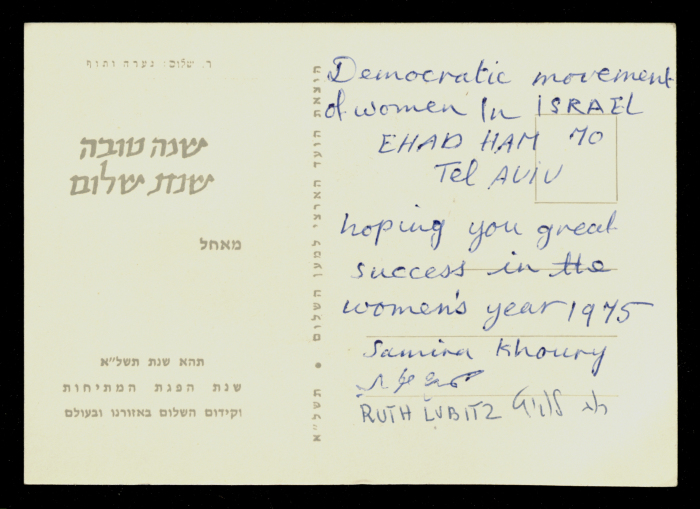 ר. שלום: נערה ותוף
שנה טובה
שנת שלום
מאחל
תהא שנת תשל"א
שנת הפגת המתיחות
וקידום השלום באזורנו ובעולם
הוצאת הועד הארצי למען השלום • תשל"א
Democratic movement
of women In ISRAEL
EHAD HAM 70
Tel AVIV
hoping you great
success in the
women's year 1975
Samira Khoury
RUTH LUBITZ